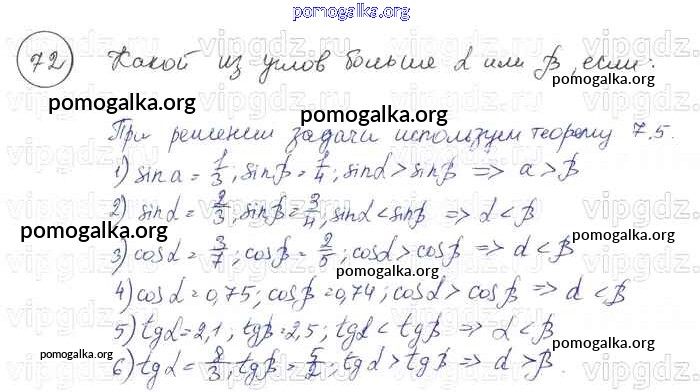 pomogalka.org
72 Какой из углов больше α или β, если:
pomogalka.org
pomogalka.org
При решении задачи используем теорему 7.5.
1) sin a = 1/3; sin β = 1/4; sin α > sin β => a > β
2) sin α = 2/3; sin β = 3/4; sin α < sin β => α < β
pomogalka.org
pomogalka.org
3) cos α = 3/7; cos β = 2/5; cos α > cos β => α < β
pomogalka.org
4) cos α = 0,75; cos β = 0,74; cos α > cos β => α < β
5) tg α = 2,1; tg β = 2,5; tg α < tg β => α < β
pomogalka.org
pomogalka.org
6) tg α = 8/3; tg β = 5/2; tg α > tg β => α > β.
vipgdz.ru